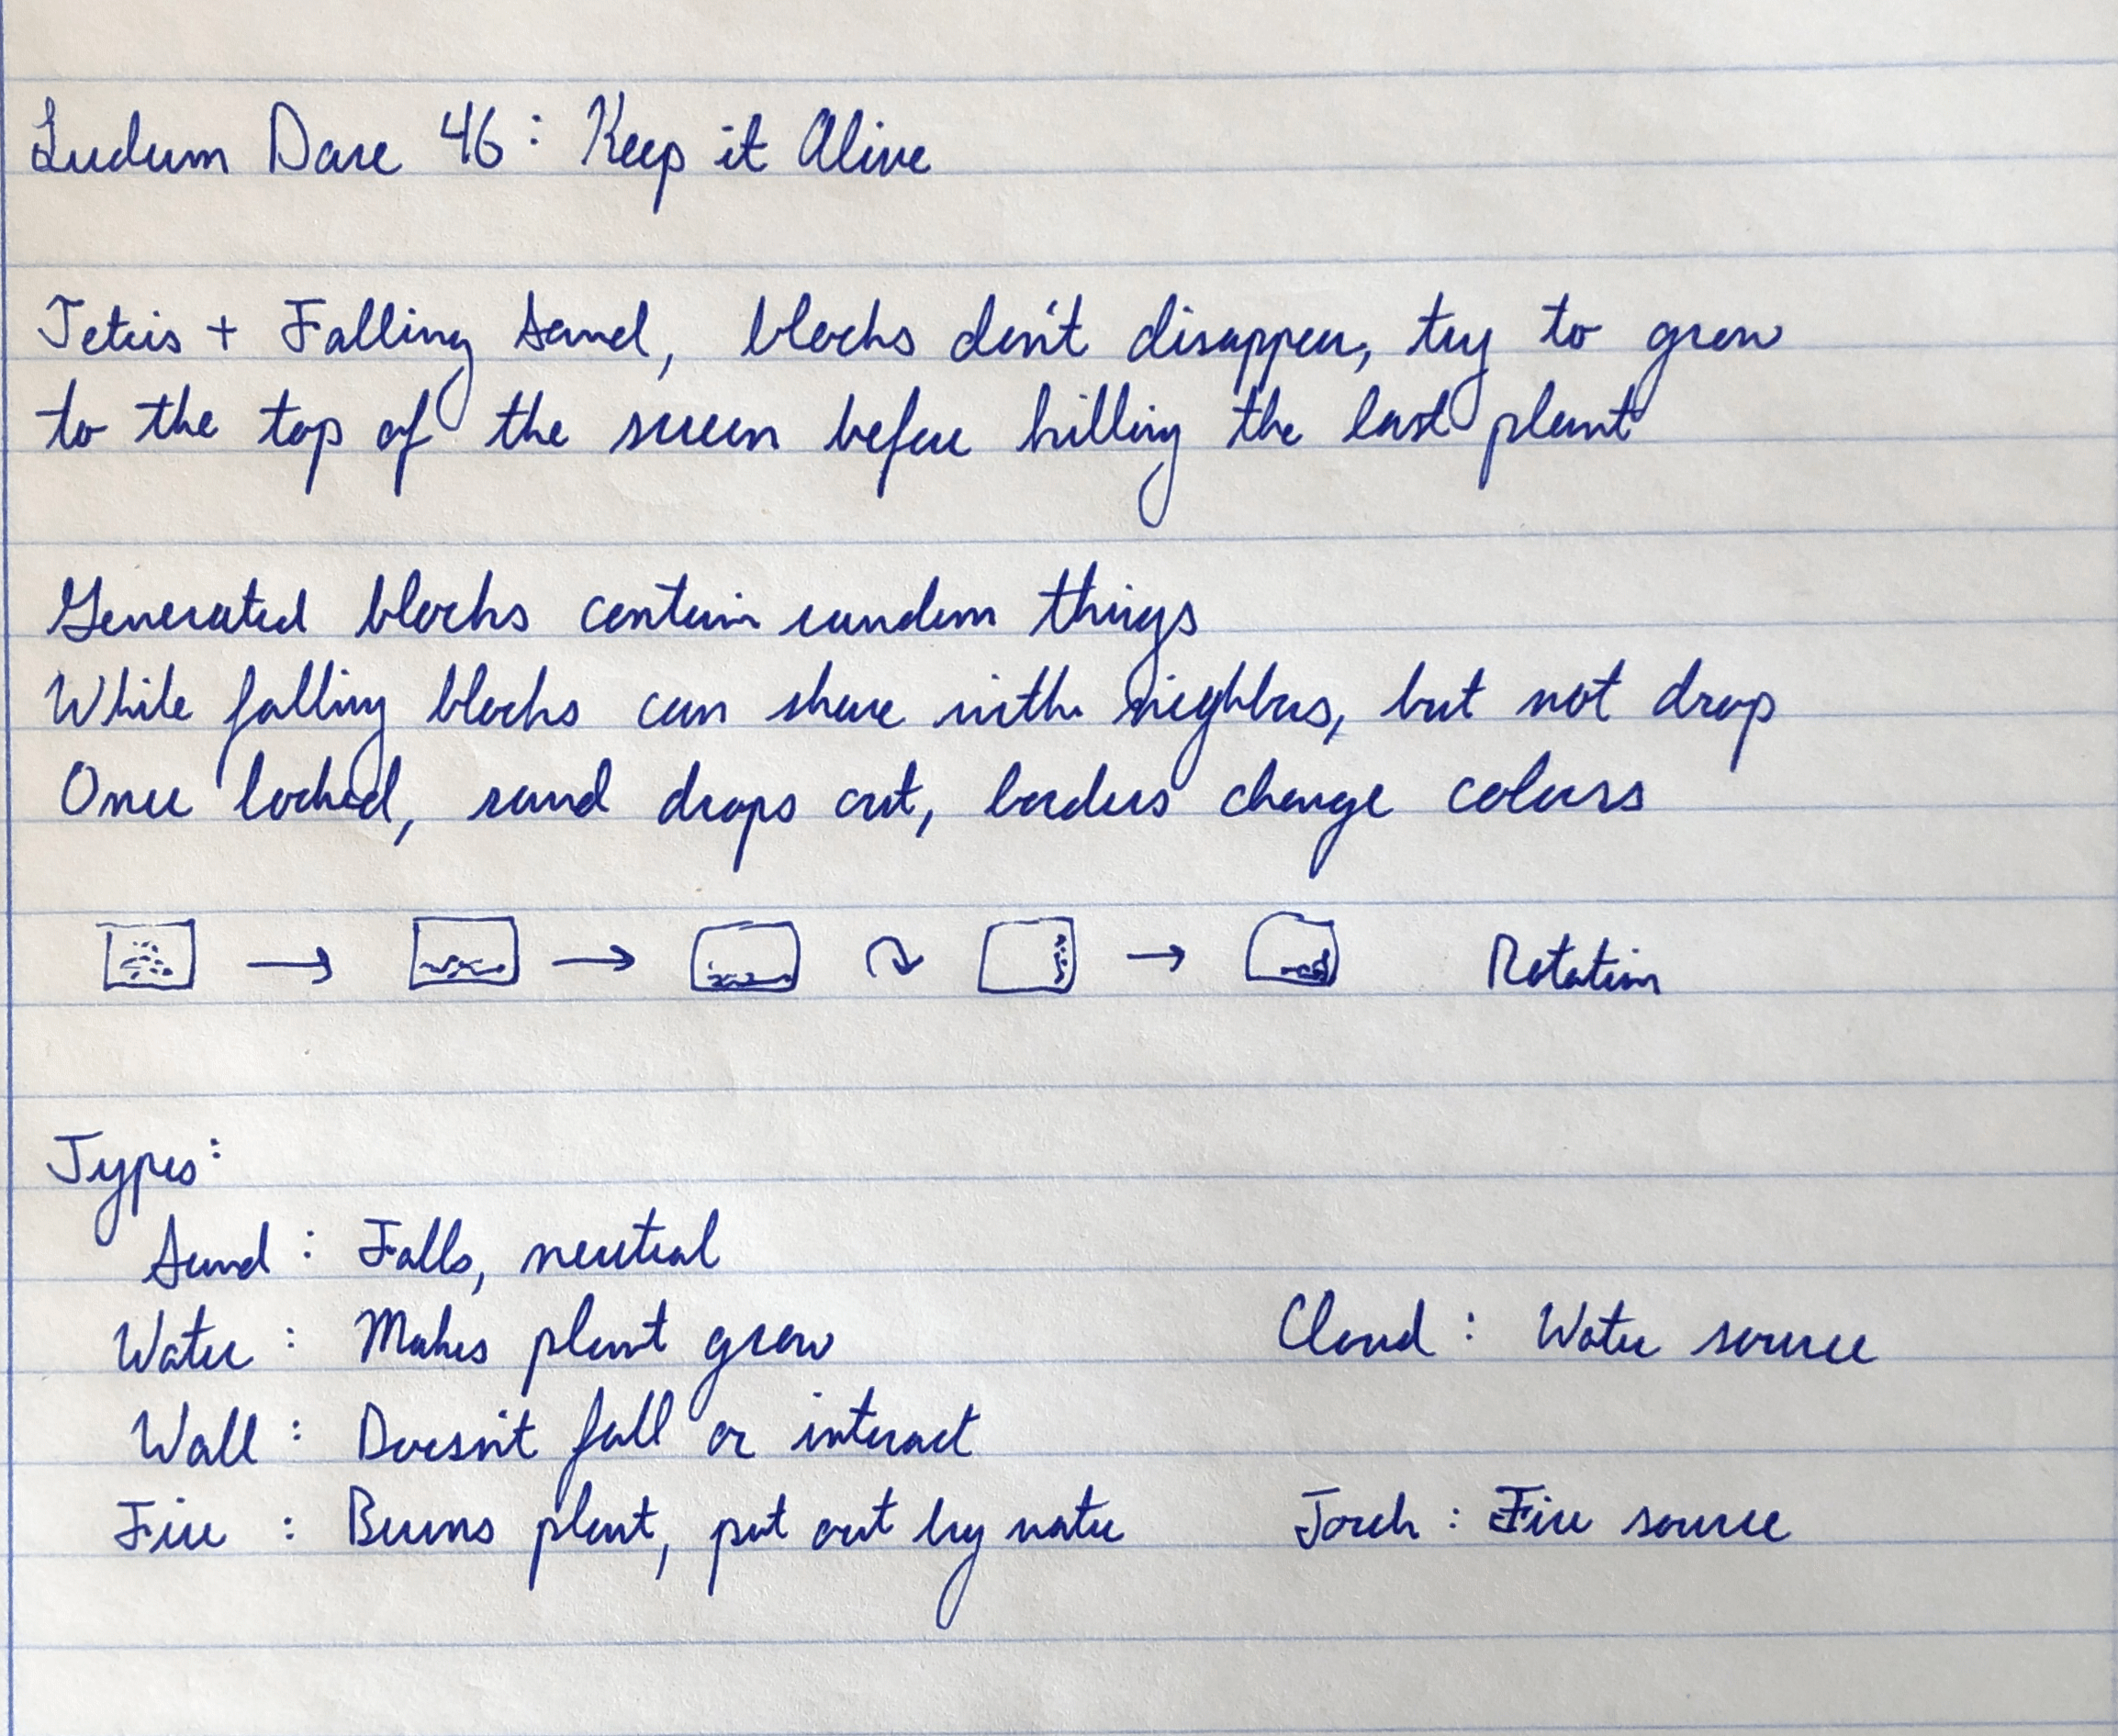 Ludum Dare 46: Keep it Alive
Tetris + Falling Sand, blocks don't disappear, try to grow
to the top of the screen before killing the last plant
Generated blocks contain random things
While falling blocks can share with neighbors, but not drop
Once locked, sand drops out, borders change colors
Rotation
Types:
Sand : Falls, neutral
Water : Makes plant grow Cloud : Water source
Wall : Doesn't fall or interact
Fire : Burns plant, put out by water Torch : Fire source